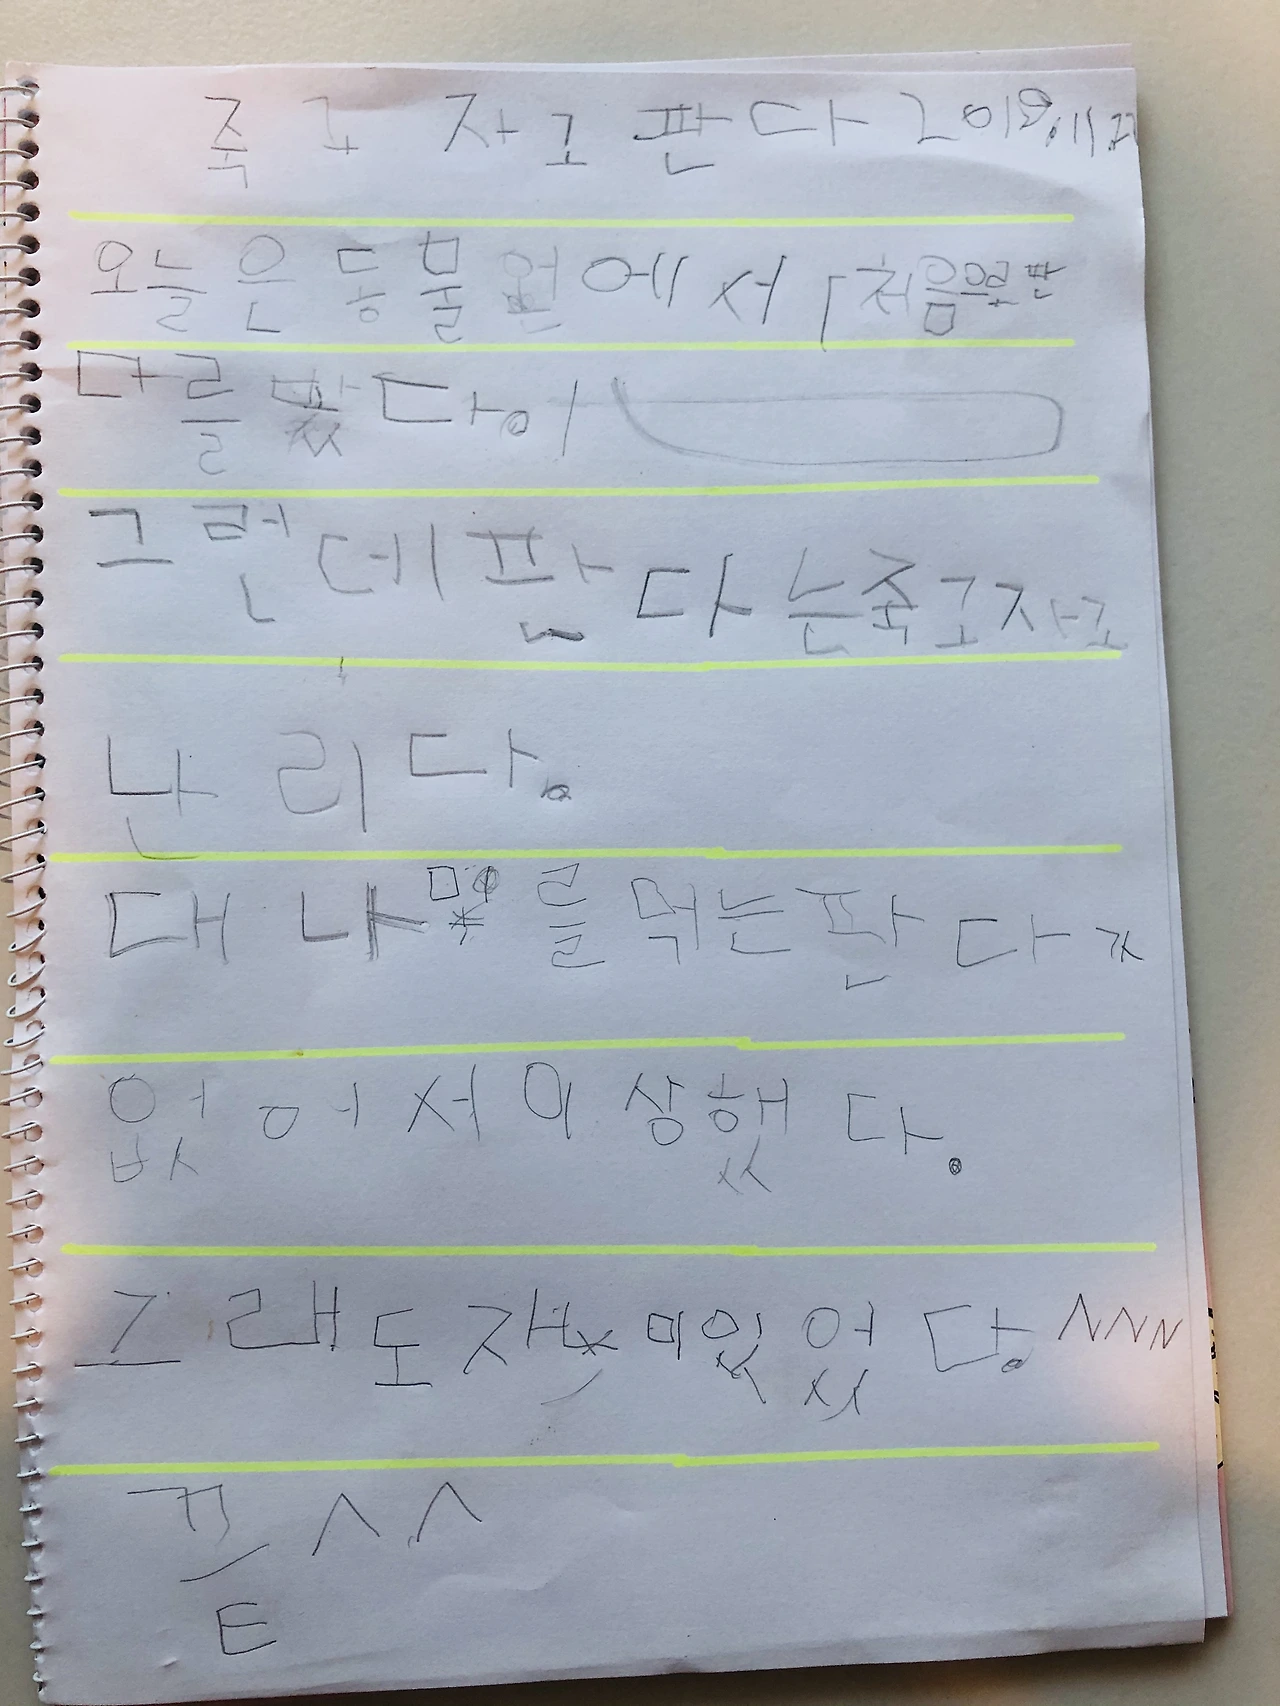 죽고 자고 판다 2019.11.22
오늘은 동물원에서 처음으로 판
다를 봤다.
그런데 판다는 죽고 자고
난리다.
대나무를 먹는 판다가
없어서 이상했다.
그래도 재미있었다. ^^^
끝 ^^